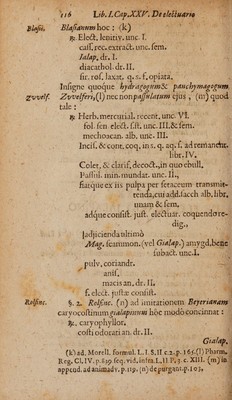 116 Lib. I. Cap. XXV. De electuario
Blasii. Blasianum hoc: (k)
℞ Elect. lenitiv. unc. I.
cass. rec. extract. unc. sem.
Jalap. dr. I.
diacathol. dr. II.
sir. ros. laxat. q. s. f. opiata,
Insigne quoque hydragogum & panchymagogum
Zvvelf. Zvvelferi, (l) nec non passulatum ejus, (m) quod
tale:
℞ Herb. mercurial. recent. unc. VI.
fol. sen. elect. s. st. unc. III. & sem.
mechoacan. alb. unc. III.
Incis. & cont. coq. in s. q. aq. s. ad remanent.
libr. IV.
Colet. & clarif. decoct., in quo ebull.
Passul. min. mundat. unc. II.,
fiatque ex iis pulpa per setaceum transmit-
tenda, cui add. sacch. alb. libr.
unam & sem.
adque consist. just. electuar. coquendo re-
dig.,
adjiciendo ultimò
Mag. scammon. (vel Gialap.) amygd. bene
subact. unc. I.
pulv. coriandr.
anis.
macis an. dr. II.
f. elect. justæ consist.
Rolfinc. §. 2. Rolfinc. (n) ad imitationem Beyerianam
caryocostinum gialapinum hôc modô concinnat:
℞. caryophyllor.
costi odorati an. dr. II.
Gialap.
(k) ad. Morell. formul. L. I. S. II c. 2. p. 165. (l) Pharm.
Reg. Cl. IV. p. 639 seq. vid. infra L. II P. 3. c. XIII. (m) in
append. ad animadv. p. 119. (n) de purgant. p. 103.